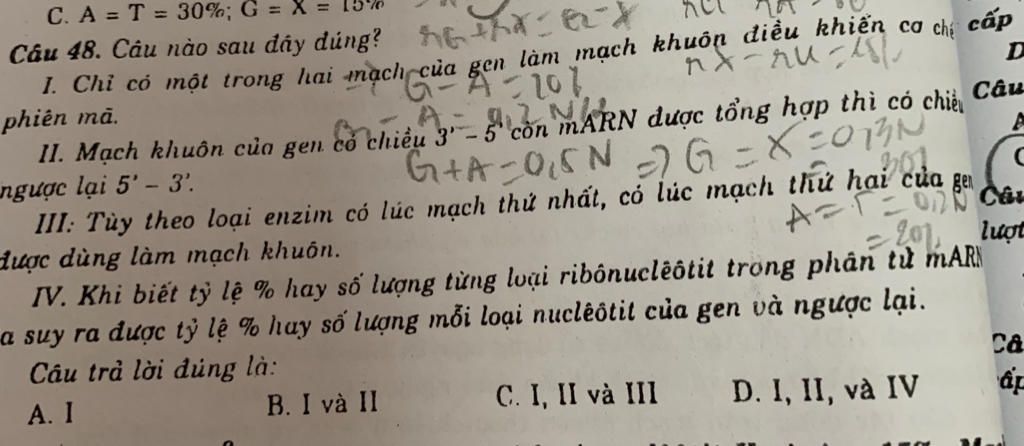 C. A = T = 30%; G = X = 15%
Câu 48. Câu nào sau đây đúng?
I. Chỉ có một trong hai mạch của gen làm mạch khuôn điều khiển cơ chế
phiên mã.
II. Mạch khuôn của gen có chiều 3' – 5' còn mARN được tổng hợp thì có chiều
ngược lại 5' – 3'.
III: Tùy theo loại enzim có lúc mạch thứ nhất, có lúc mạch thứ hai của gen
được dùng làm mạch khuôn.
IV. Khi biết tỷ lệ % hay số lượng từng loại ribônuclêôtit trong phân tử mARN
a suy ra được tỷ lệ % hay số lượng mỗi loại nuclêôtit của gen và ngược lại.
Câu trả lời đúng là:
A. I B. I và II C. I, II và III D. I, II, và IV
G - A = 20%
G + A = 0,5N => G = X = 0,3N
= 30%
A = T = 0,2N
= 20%
cấp
D
Câu
A
C
Câu
lượt
Câ
ấp